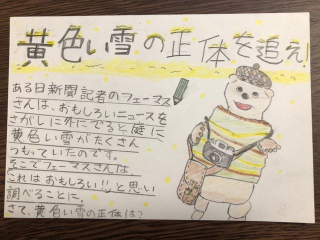 黄色い雪の正体を追え!
ある日新聞記者のフェーマス
さんは、おもしろいニュースを
さがしに外にでると庭に
黄色い雪がたくさん
つもっていたのです。
そこでフェーマスさんは
これはおもしろい!!と思い
調べることに。
さて、黄色い雪の正体は?